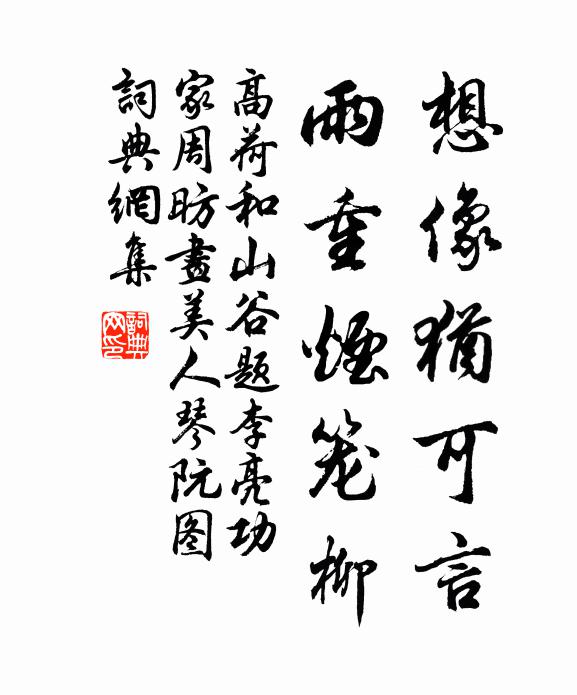 想像猶可言
雨重煙笼柳
高荷和山谷题李亮功
家周昉畫美人琴阮图
詞典網集
詞典
网印